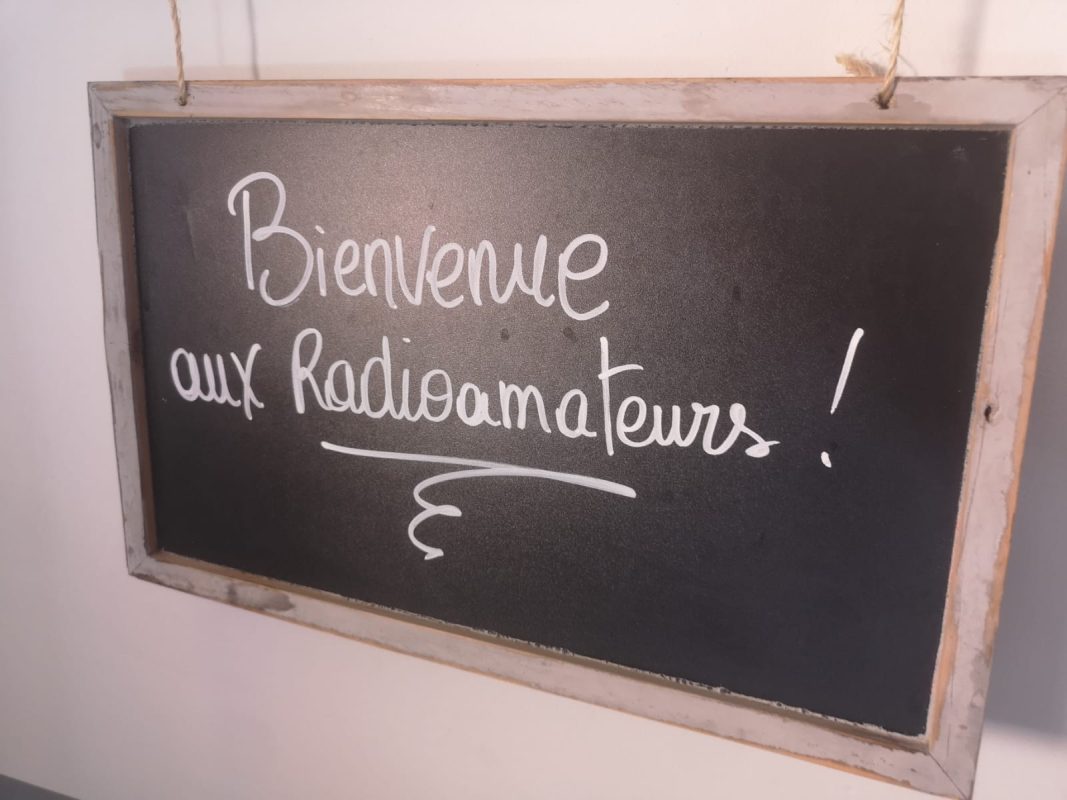 Bienvenue
aux Radioamateurs !